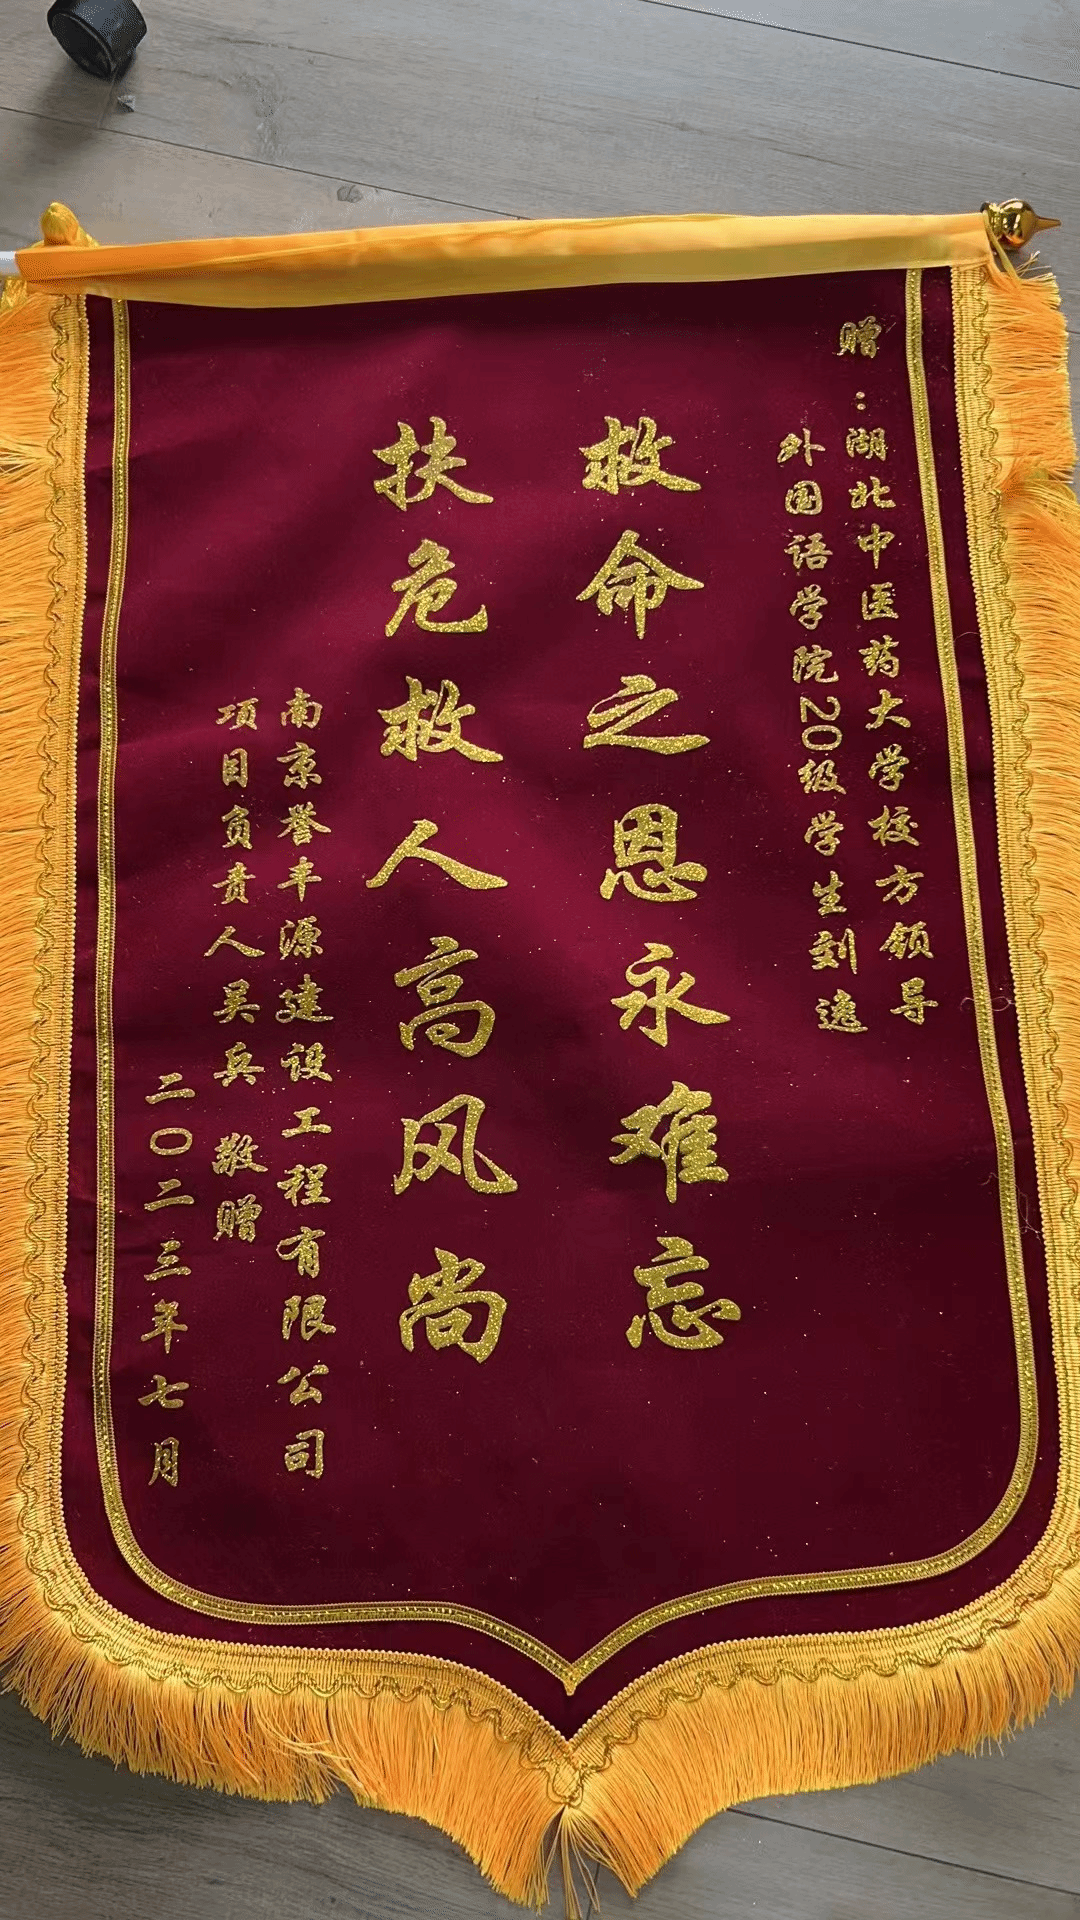 赠:湖北中医药大学校方领导
外国语学院20级学生刘逸
救命之恩永难忘
扶危救人高风尚
南京誉丰源建设工程有限公司
项目负责人吴兵 敬赠
二〇二三年七月